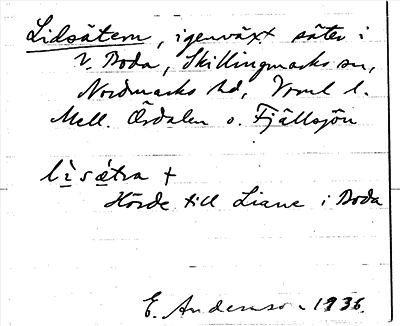 Lidsätern, igenväxt säter i
V. Boda, Skillingmarks sn,
Nordmarks hd, Vrml l.
Mell. Ördalen o. Fjällsjön
lìsǽtra +
Hörde till Liane i Boda
E. Anderson 1936.